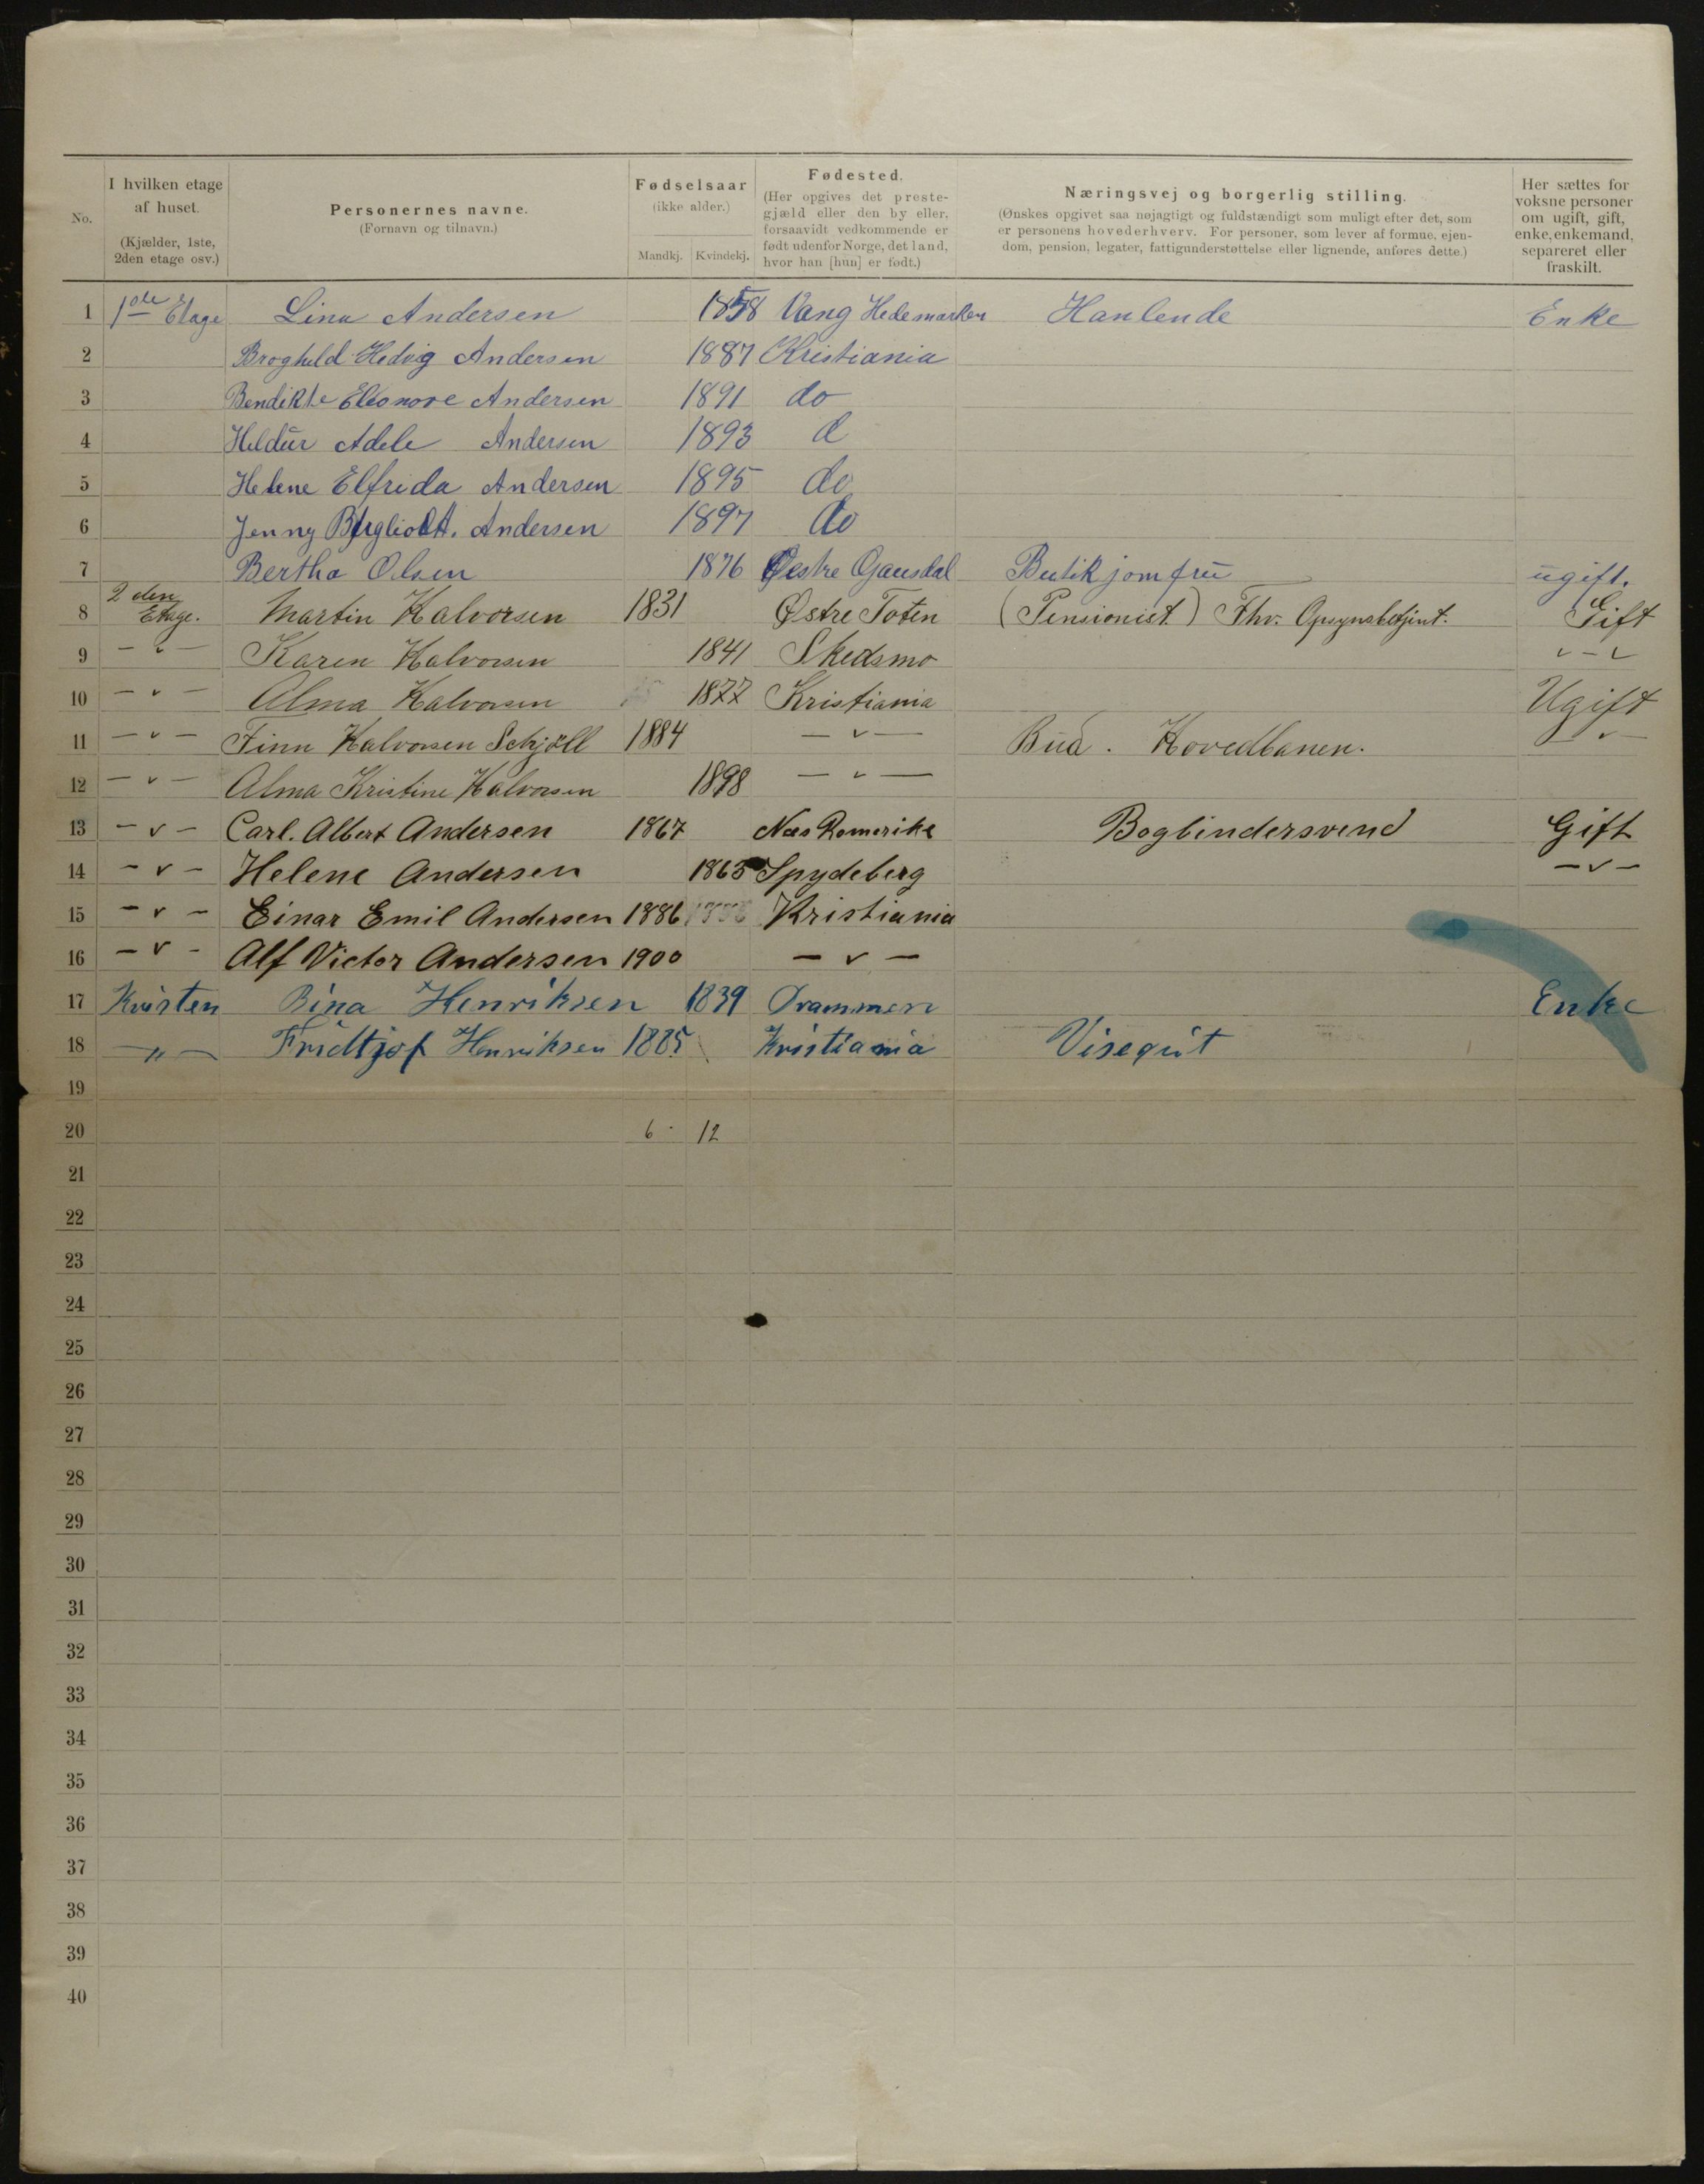 No.
I hvilken etage af huset.
(Kjælder, 1ste, 2den etage osv.)
Personernes navne.
(Fornavn og tilnavn.)
Fødselsaar
(ikke alder.)
Mandkj. Kvindekj.
Fødested.
(Her opgives det prestegjæld eller den by eller, forsaavidt vedkommende er født udenfor Norge, det land, hvor han [hun] er født.)
Næringsvej og borgerlig stilling.
(Ønskes opgivet saa nøjagtigt og fuldstændigt som muligt efter det, som er personens hovederhverv. For personer, som lever af formue, ejendom, pension, legater, fattigunderstøttelse eller lignende, anføres dette.)
Her sættes for voksne personer om ugift, gift, enke, enkemand, separeret eller fraskilt.
1 1ste Etage Lina Andersen 1858 Vang Hedemarken Hanlende Enke
2 Broghild Hedvig Andersen 1887 Kristiania
3 Bendikte Eleonore Andersen 1891 do
4 Hildur Adele Andersen 1893 d
5 Helene Elfrida Andersen 1895 do
6 Jenny Andersen 1897 do
7 Bertha Olsen 1876 Østre Gausdal Butikjomfru ugift.
8 2den Etage. Martin Halvorsen 1831 Østre Toten (Pensionist) Fhv. Opsynsbetjent. Gift
9 — " — Karen Halvorsen 1841 Skedsmo " — "
10 — " — Alma Halvorsen 1877 Kristiania Ugift
11 — " — Finn Halvorsen Schjöll 1884 — " — Bud. Hovedbanen. — " —
12 — " — Alma Kristine Halvorsen 1898 — " —
13 — " — Carl. Albert Andersen 1867 Næs Romerike Bogbindersvend Gift
14 — " — Helene Andersen 1865 Spydeberg — " —
15 — " — Einar Emil Andersen 1886 Kristiania
16 — " — Alf Victor Andersen 1900 — " —
17 Kvisten Bina Henriksen 1839 Drammen Enke
18 — " — Fridtjof Henriksen 1885 Kristiania Visegut
19
20 6 12
21
22
23
24
25
26
27
28
29
30
31
32
33
34
35
36
37
38
39
40